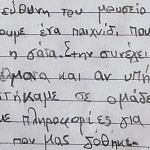 εύθυνη του μουσείο
ουμε ένα παιχνίδι που
η γάτα. Στην συνέχει
έλματα και αν υπή
ιστήκαμε σε ομάδε
με πληροφορίες για
που μας δόθηκε.